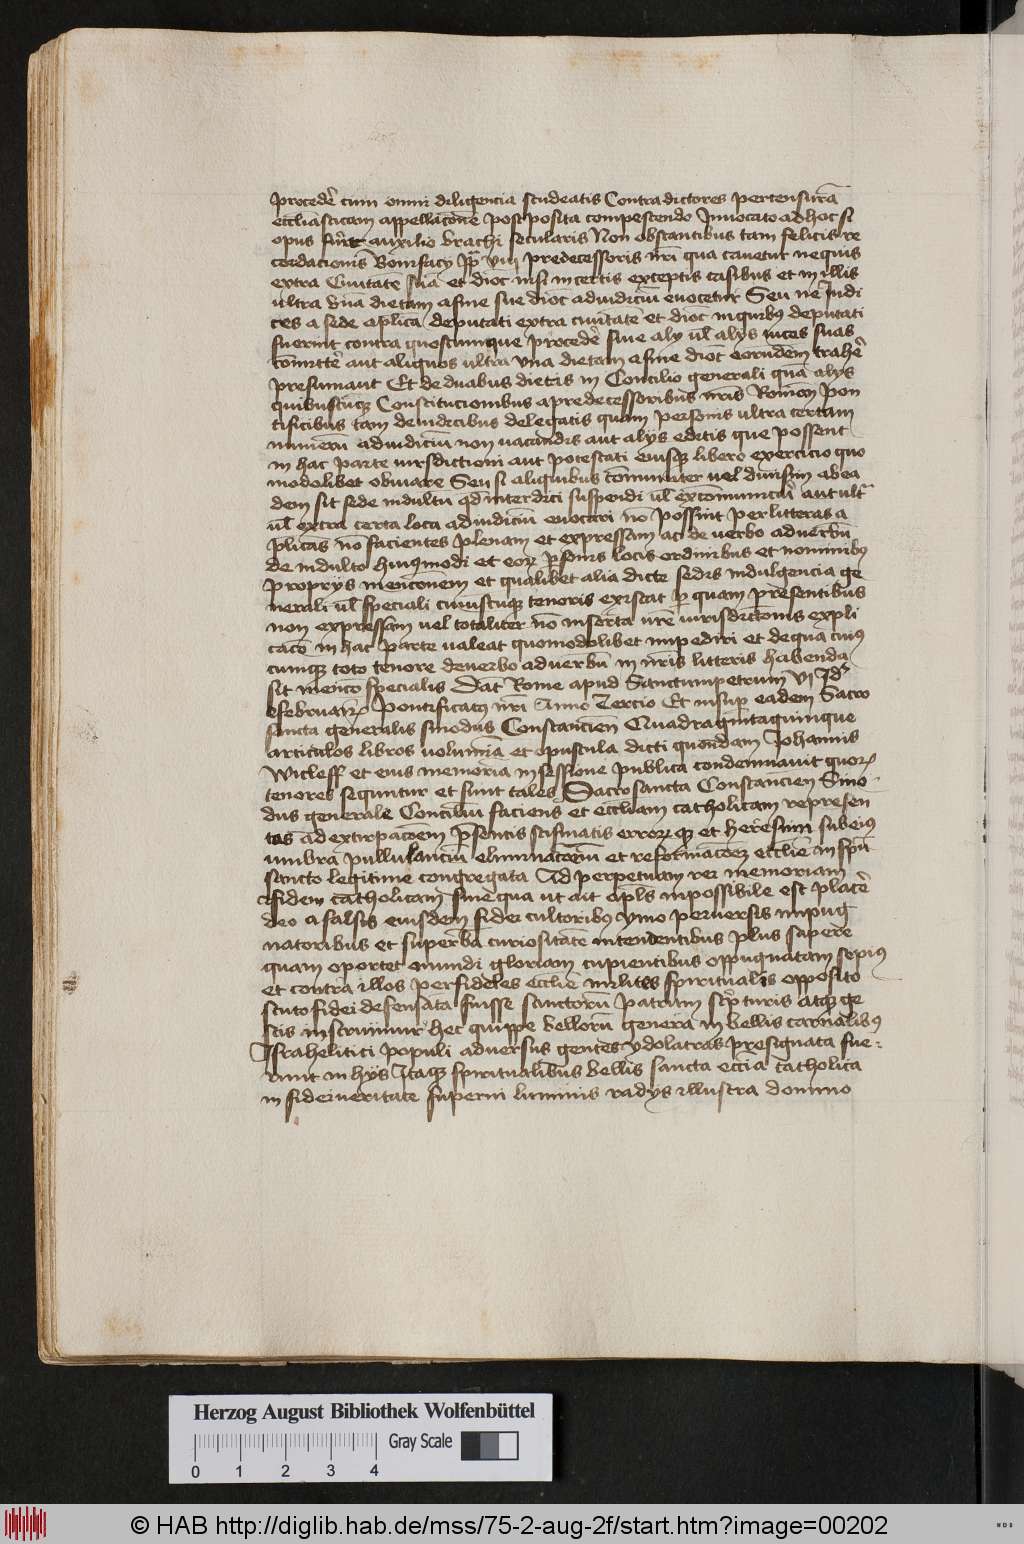 procede᷑ cum omni diligencia studeatis Contradictores per censurā
eccliasticam appellac̄one postposita compescendo Inuocato ad hoc si
opus fu᷑it auxilio brachi secularis Non obstantibus tam felicis re
cordacionis Bonifacij pp̄ viij predecessoris nr̄i qua cauetur ne quis
extra Ciuitatē suā et dioc̄ nisi in certis exceptis casibus et in illis
ultra vna dietam a fine sue dioc̄ ad iudiciū euocetur Seu ne Iudi
ces a sede ap̄lica deputati extra ciuitatē et dioc̄ in quibus deputati
fuerint contra quoscumque procede᷑ siue alij ul̄ alijs vices suas
cōmitte᷑ aut aliquos ultra vna dietam a fine dioc̄ eorundem trahe᷑
presumant Et de duabus dietis in Concilio generali quā alijs
quibuscūqȝ Constitucionibus a predecessoribus nr̄is Romāon Pon
tificibus tam de iudicibus delegatis quam personis ultra certum
numerū ad iudiciū non vacandis aut alijs editis que possent
in hac parte iurisdictioni aut potestati eiusqȝ libero exercicio quo
modolibet obuiare Seu si aliquibus cōmuniter uel diuisim ab ea
dem sit sede indultū qd̄ interdici suspendi ul̄ excōmunicari aut ult᷑
ul̄ extra certa loca ad iudiciū euocari nō possint per litteras a
plicas nō facientes plenam et expressam ac de uerbo ad uerbū
de indulto huiꝰmodi et eoꝝ psonis locis ordinibus et nominibꝰ
proprijs menc̄onem et qualibet alia dicte sedis indulgencia ge
nerali ul̄ speciali cuiuscūqȝ tenoris existat p quam presentibus
non expressam uel totaliter nō insertā ur̄e iurisdicc̄onis expli
cacō in hac parte ualeat quomodolibet impediri et de qua cuiꝰ
cumqȝ toto tenore de uerbo ad uerbū in nr̄is litteris habenda
sit menco specialis Dat̄ Rome apud Sanctumpetrum VI Id᷑
februarꝝ Pontificatꝰ nr̄i Anno Tercio Et insup eadem Sacro
sancta generalis sinodus Constancieñ Quadragintaquinque
articulos libros uolumina et opuscula dicti quondam Johannis
Wicleff et eius memoria in sessione publica condemnauit quoꝝ
tenores sequntur et sunt tales Sacrosancta Constancieñ Sino
dus generale Conciliū faciens et eccliam catholicam represen
tās ad extirpac̄oem psentis scismatis erroꝝ qȝ et heresum sub eiꝰ
umbra pullulanciū eliminac̄oem et reformac̄oeȝ ecclie in spū
sancto legittime congregata Ad perpetuam rei memoriam
fidem catholicam sine qua ut ait apl̄s inpossibile est place᷑
deo a falsis eiusdem fidei cultoribꝰ ymo peruersis impug
natoribus et superba curiositate intendentibus plus sapere
quam oportet mundi gloriam cupientibus oppugnatam sepiꝰ
et contra illos per fideles ecclie milites spirituales opposito
scuto fidei defensata fuisse sanctorū Patrum scptūris atqȝ ge
stis instruimur hec quippe bellorū genera in bellis carnalibꝰ
Israhelitici populi aduersus gentes ydolatras presignata fue-
runt in hijs Itaqȝ spiritualibus bellis sancta ecc̄ia catholica
in fidei ueritate superni luminis radijs illustra domino
Herzog August Bibliothek Wolfenbüttel
Gray Scale
0 1 2 3 4
© HAB http://diglib.hab.de/mss/75-2-aug-2f/start.htm?image=00202